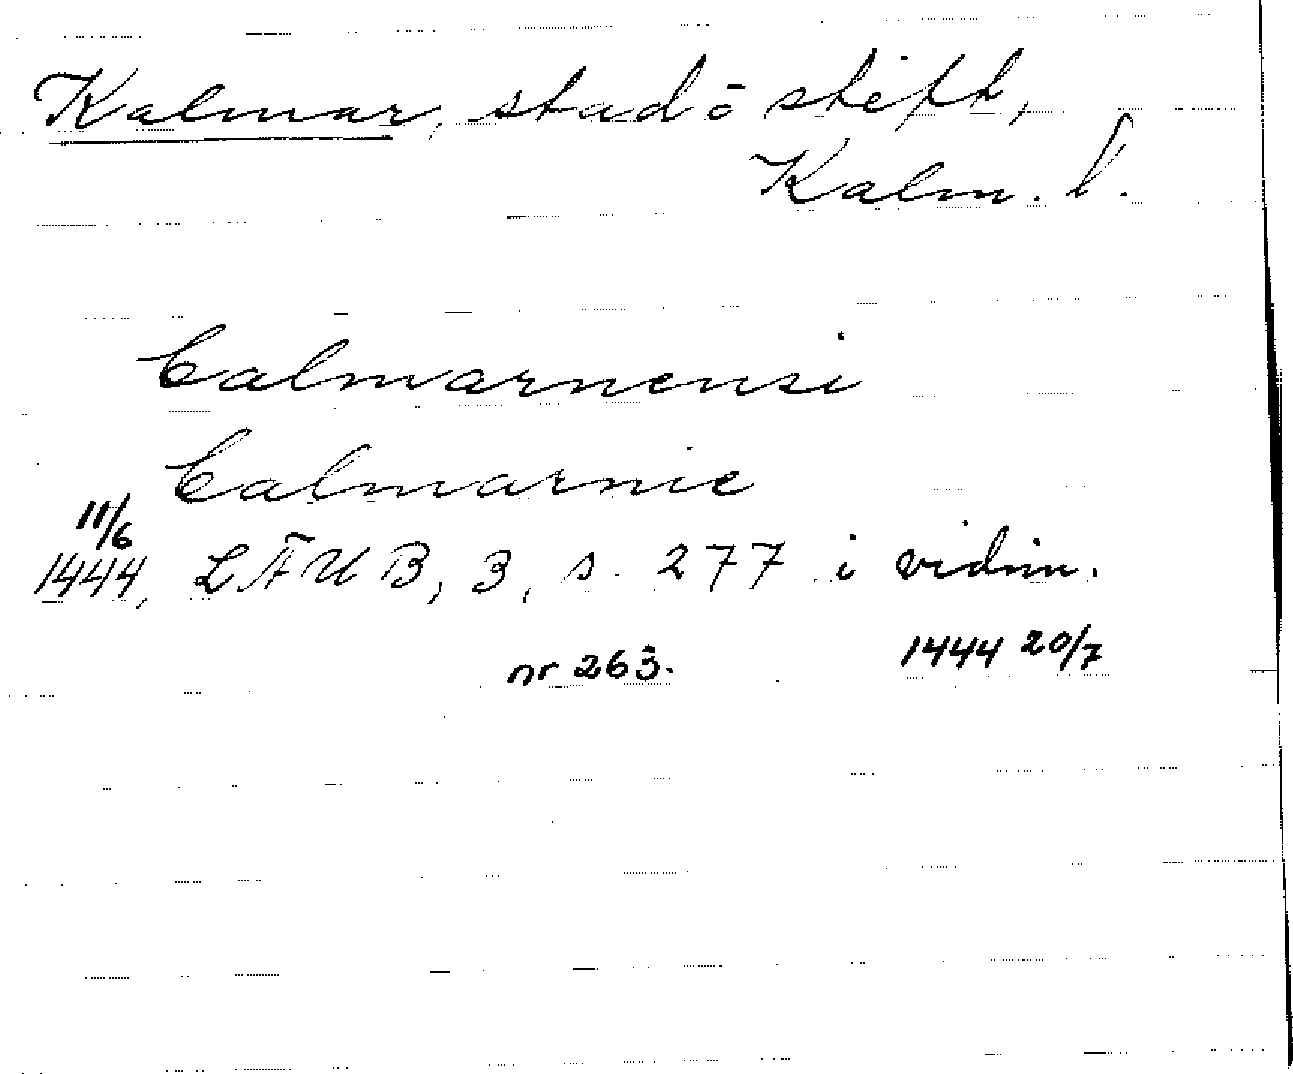 Kalmar, stad o stift,
Kalm. l.
Calmarnensi
Calmarnie
11/6
1444, LÄUB, 3, s. 277 i vidim.
nr 263. 1444 20/7